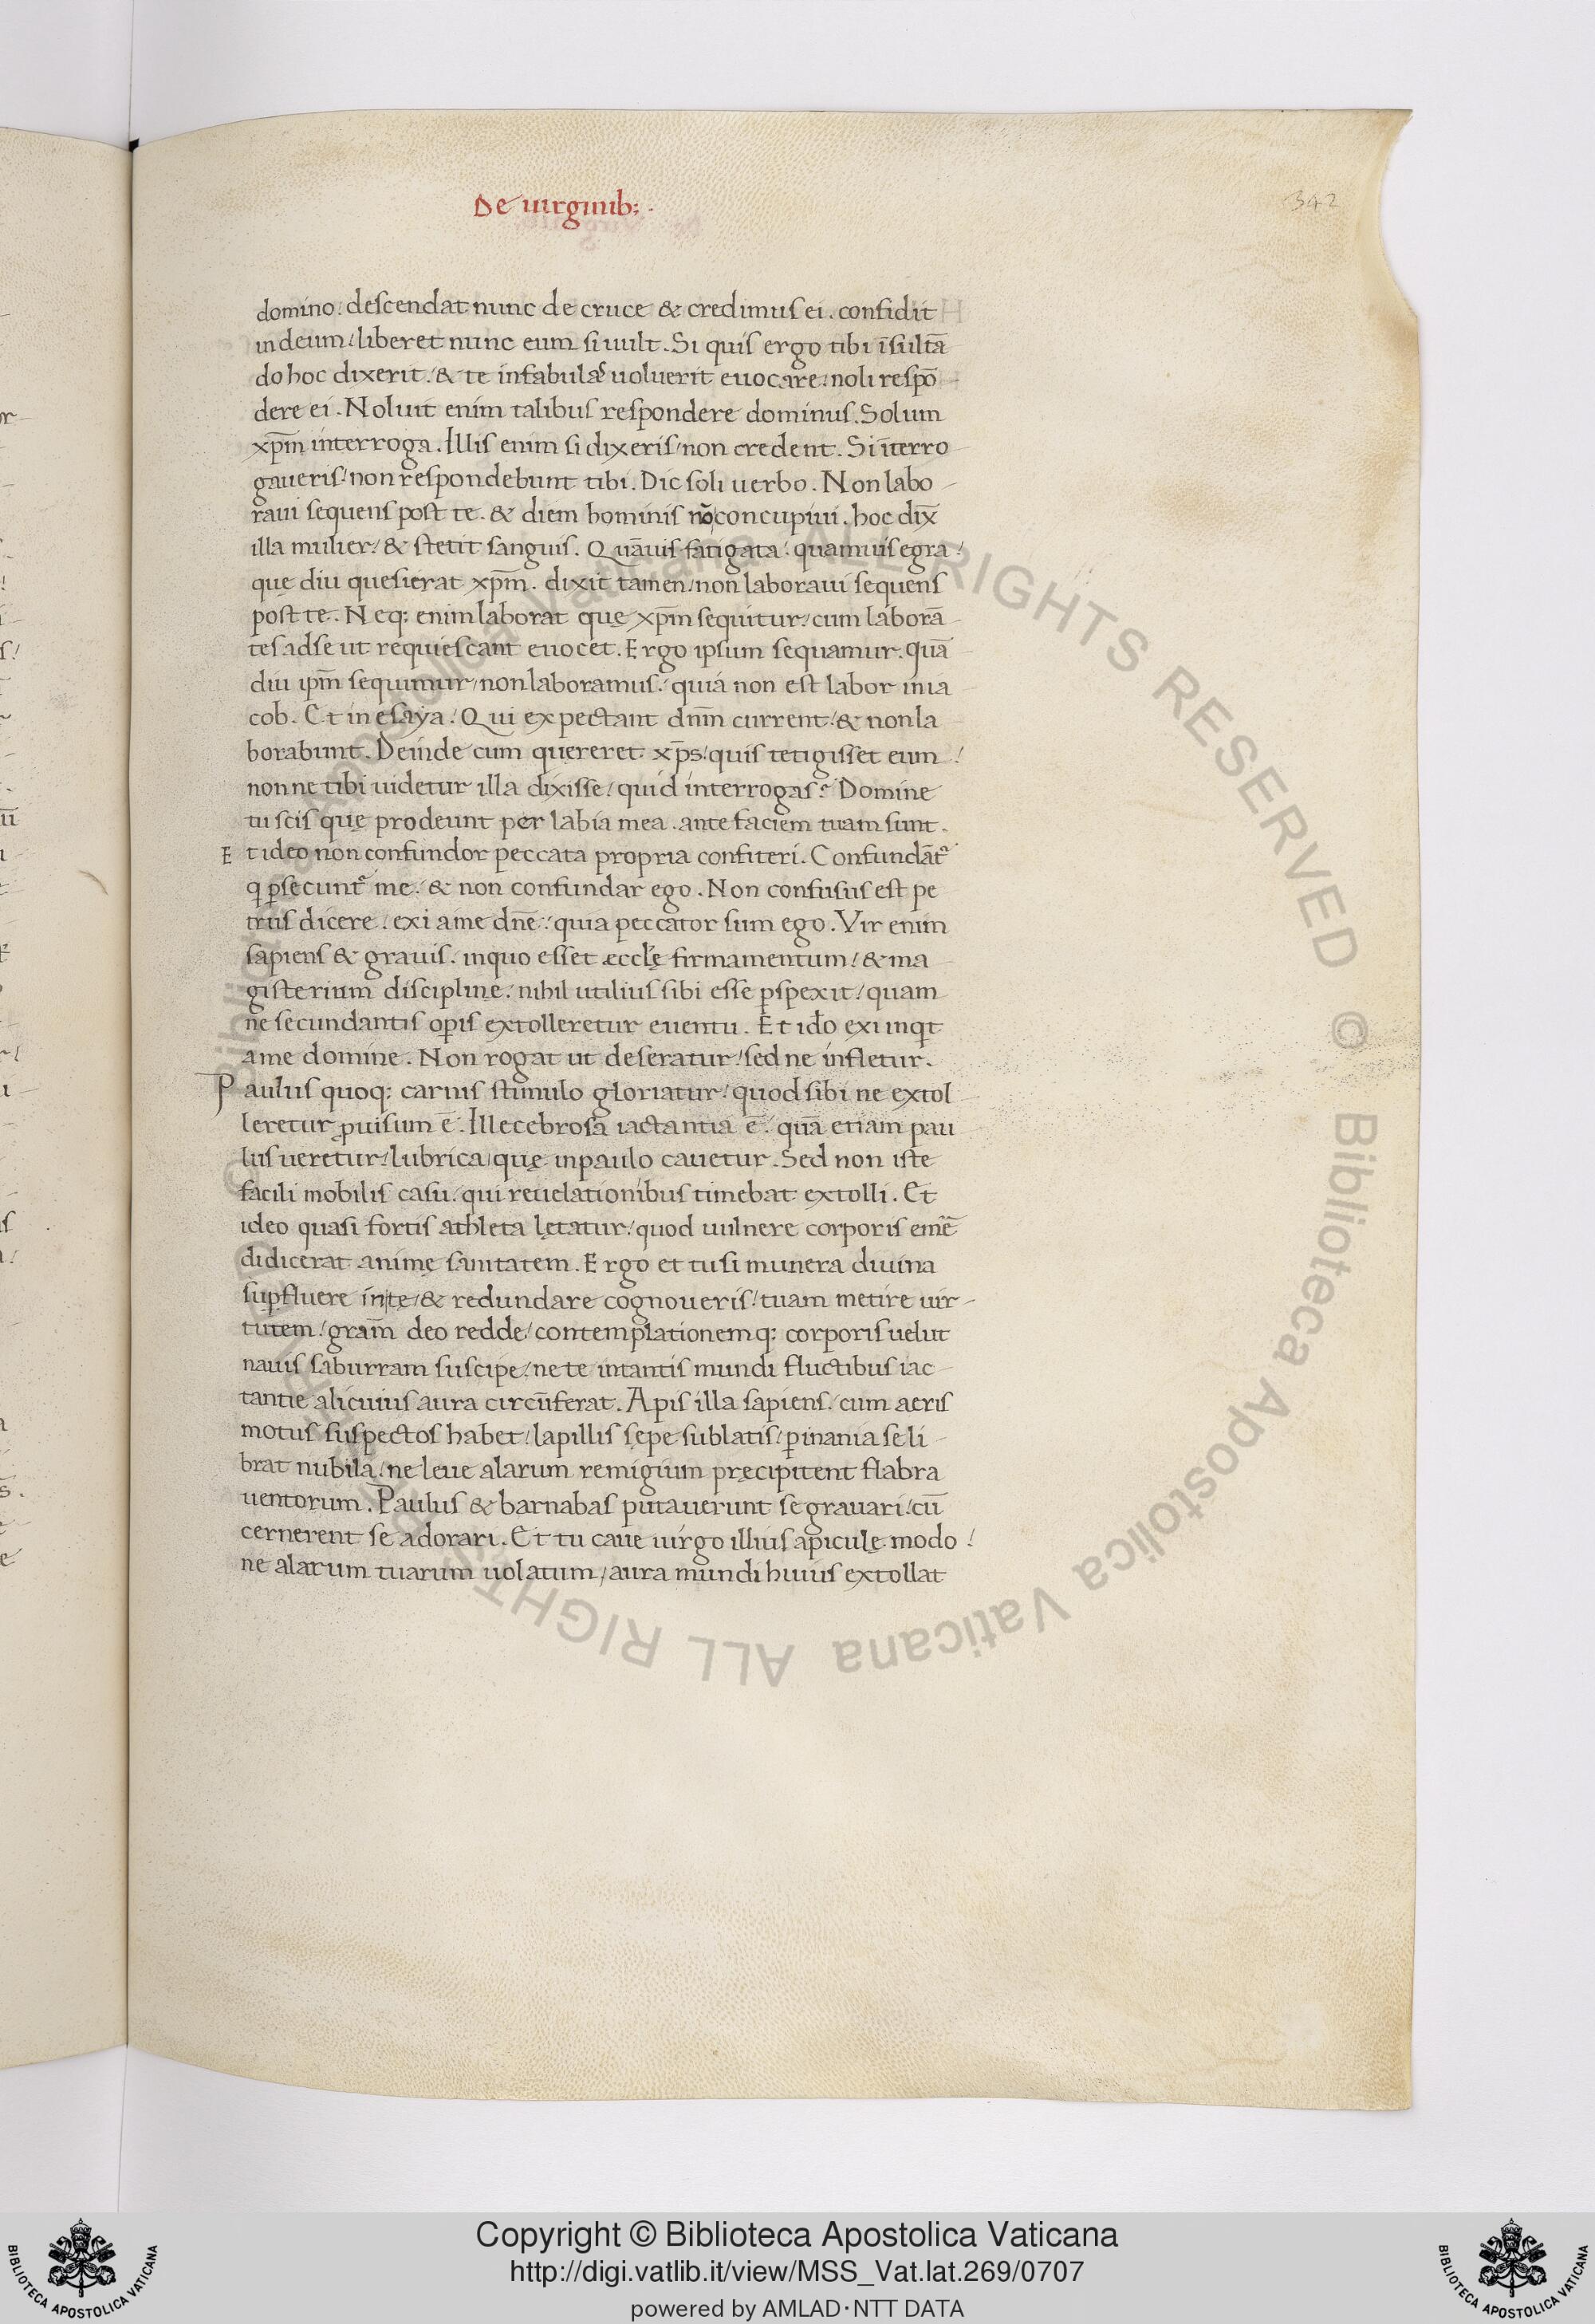 De uirginib;.
342
domino. descendat nunc de cruce & credimus ei. confidit
in deum! liberet nunc eum si uult. Si quis ergo tibi īsultā
do hoc dixerit. & te in fabulas uoluerit euocare. noli respō
dere ei. Noluit enim talibus respondere dominus. Solum
xp̄m interroga. Illis enim si dixeris/ non credent. Si īterro
gaueris! non respondebunt tibi. Dic soli uerbo. Non labo
raui sequens post te. & diem hominis nō concupiui. hoc dix̄
illa mulier! & stetit sanguis. Quāuis fatigata! quamuis egra!
quę diu quesierat xp̄m. dixit tamen/ non laboraui sequens
post te. Neq; enim laborat quę xp̄m sequitur! cum laborā
tes ad se ut requiescant euocet. Ergo ipsum sequamur. quā
diu ip̄m sequimur/ non laboramus! quia non est labor in ia
cob. Et in esaya! Qui expectant dn̄m current! & non la
borabunt. Deinde cum quereret xp̄s! quis tetigisset eum!
nonne tibi uidetur illa dixisse/ quid interrogas? Domine
tu scis quę prodeunt per labia mea. ante faciem tuam sunt.
Et ideo non confundor peccata propria confiteri. Confundāt᷑
q p̱secunt᷑ me. & non confundar ego. Non confusus est pe
trus dicere! exi a me dn̄e! quia peccator sum ego. Vir enim
sapiens & grauis. in quo esset ęcclę̄ firmamentum! & ma
gisterium discipline. nihil utilius sibi esse p̱spexit/ quam
ne secundantis op̱is extolleretur euentu. Et idō exi inqt
a me domine. Non rogat ut deseratur! sed ne infletur.
Paulus quoq; carnis stimulo gloriatur! quod sibi ne extol
leretur ꝓuisum ē. Illecebrosa iactantia ē! quā etiam pau
lus ueretur! lubrica/ quę in paulo cauetur. Sed non iste
facili mobilis casu. qui reuelationibus timebat extolli. Et
ideo quasi fortis athleta lętatur! quod uulnere corporis emē
didicerat animę sanitatem. Ergo et tu si munera diuina
sup̱fluere in te/ & redundare cognoueris! tuam metire uir
tutem! gram̄ deo redde/ contemplationemq; corporis uelut
nauis saburram suscipe/ ne te intantis mundi fluctibus iac
tantie alicuius aura circūferat. Apis illa sapiens! cum aeris
motus suspectos habet/ lapillis sępe sublatis/ p̱ inania se li
brat nubila! ne leue alarum remigium pręcipitent flabra
uentorum. Paulus & barnabas putauerunt se grauari! cū
cernerent se adorari. Et tu caue uirgo illius apiculę modo!
ne alarum tuarum uolatum/ aura mundi huius extollat
© Biblioteca Apostolica Vaticana ALL RIGHTS RESERVED © Biblioteca Apostolica Vaticana ALL RIGHTS RESERVED
Copyright © Biblioteca Apostolica Vaticana
http://digi.vatlib.it/view/MSS_Vat.lat.269/0707
powered by AMLAD·NTT DATA
BIBLIOTECA APOSTOLICA VATICANA
BIBLIOTECA APOSTOLICA VATICANA